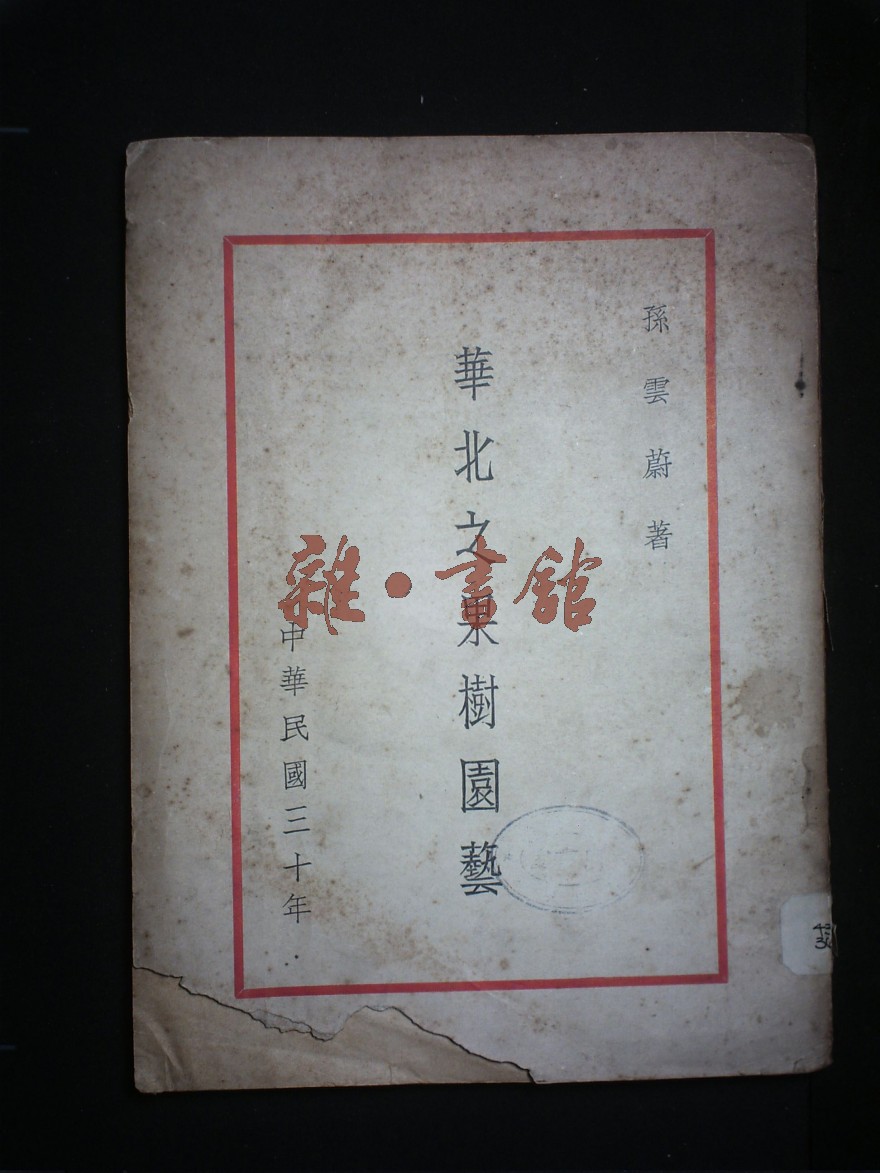 孫雲蔚著
華北之果樹園藝
中華民國三十年
雜·書館